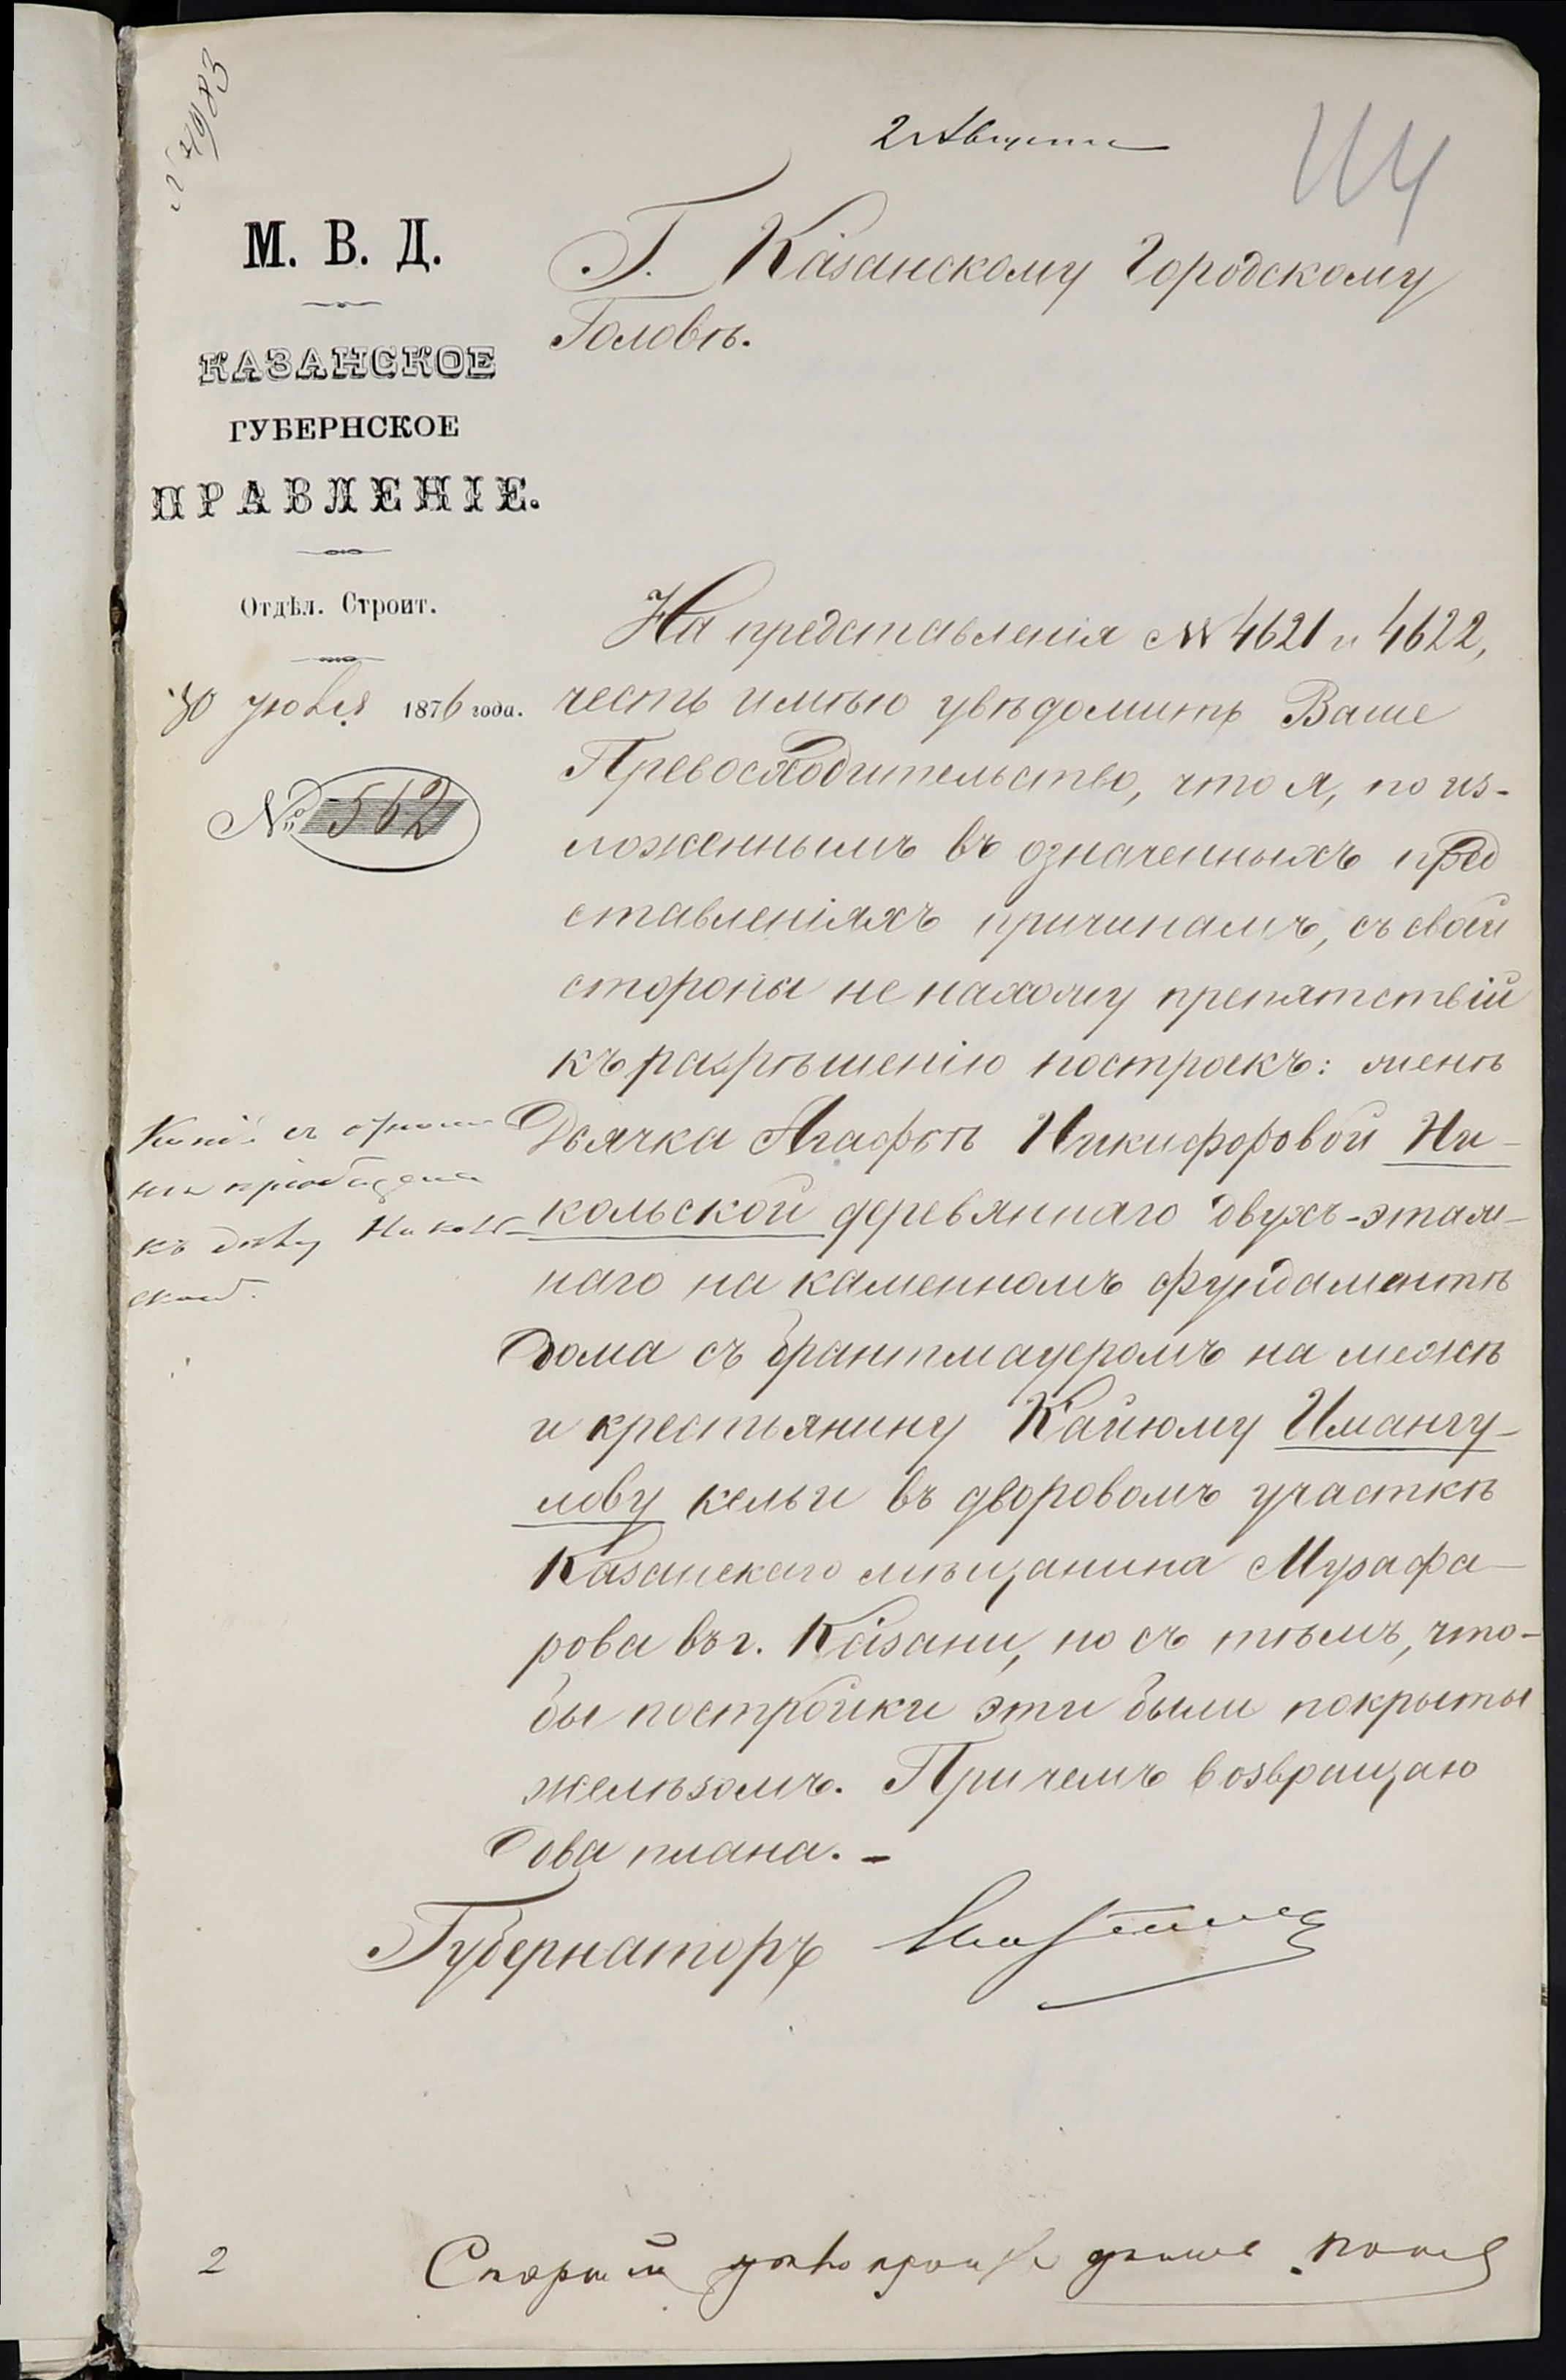 № 7983
2 Августа
114
М. В. Д.
КАЗАНСКОЕ
ГУБЕРНСКОЕ
ПРАВЛЕНІЕ.
Отдѣл. Строит.
30 Іюля 1876 года.
№ 562
Г. Казанскому Городскому
Головѣ.
На представленія №№ 4621 и 4622,
честь имѣю увѣдомить Ваше
Превосходительство, что я, по из-
ложеннымъ въ означенныхъ пред
ставленіяхъ причинамъ, съ своей
стороны не нахожу препятствій
къ разрѣшенію построекъ: женѣ
Дьячка Агафьѣ Никифоровой Ни-
кольской деревяннаго двухъ-этаж-
наго на каменномъ фундаментѣ
дома съ брантмауеромъ на межѣ
и крестьянину Каюму Имангу-
лову кельи въ дворовомъ участкѣ
Казанскаго мѣщанина Музафа-
рова въ г. Казани, но съ тѣмъ, что-
бы постройки эти были покрыты
желѣзомъ. Причемъ возвращаю
два плана.-
Губернаторъ
Копія съ
пріобщена
къ дѣлу Николь-
ской.
2